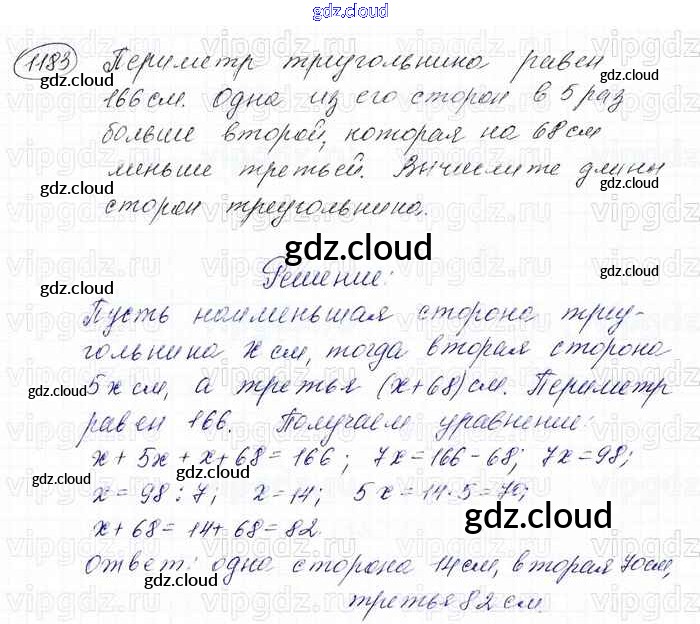 gdz.cloud
1183 Периметр треугольника равен
166 см. Одна из его сторон в 5 раз
больше второй, которая на 68 см
меньше третьей. Вычислите длины
сторон треугольника.
gdz.cloud
Решение:
Пусть наименьшая сторона треу-
гольника x см, тогда вторая сторона
5x см, а третья (x+68) см. Периметр
равен 166. Получаем уравнение:
x + 5x + x + 68 = 166; 7x = 166 - 68; 7x = 98;
x = 98 : 7; x = 14; 5x = 14 · 5 = 70;
x + 68 = 14 + 68 = 82.
gdz.cloud
Ответ: одна сторона 14 см, вторая 70 см,
третья 82 см.